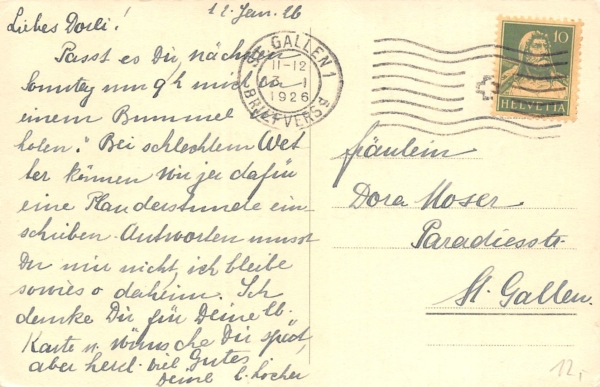 11. Jan. 26
Liebes Dorli!
Passt es Dir, nächsten
Sonntag um 9 h mich zu
einem Bummel
holen? Bei schlechtem Wet
ter können wir ja dafür
eine Plauderstunde ein-
schieben. Antworten musst
Du mir nicht, ich bleibe
sowieso daheim. Ich
danke Dir für Deine lb.
Karte u. wünsche Dir spät,
aber herzl. viel Gutes
Deine E. Locher
ST. GALLEN 1
11-12
1926
BRIEFVERSD
10
HELVETIA
Fräulein
Dora Moser
Paradiesstr.
St. Gallen.
12,-